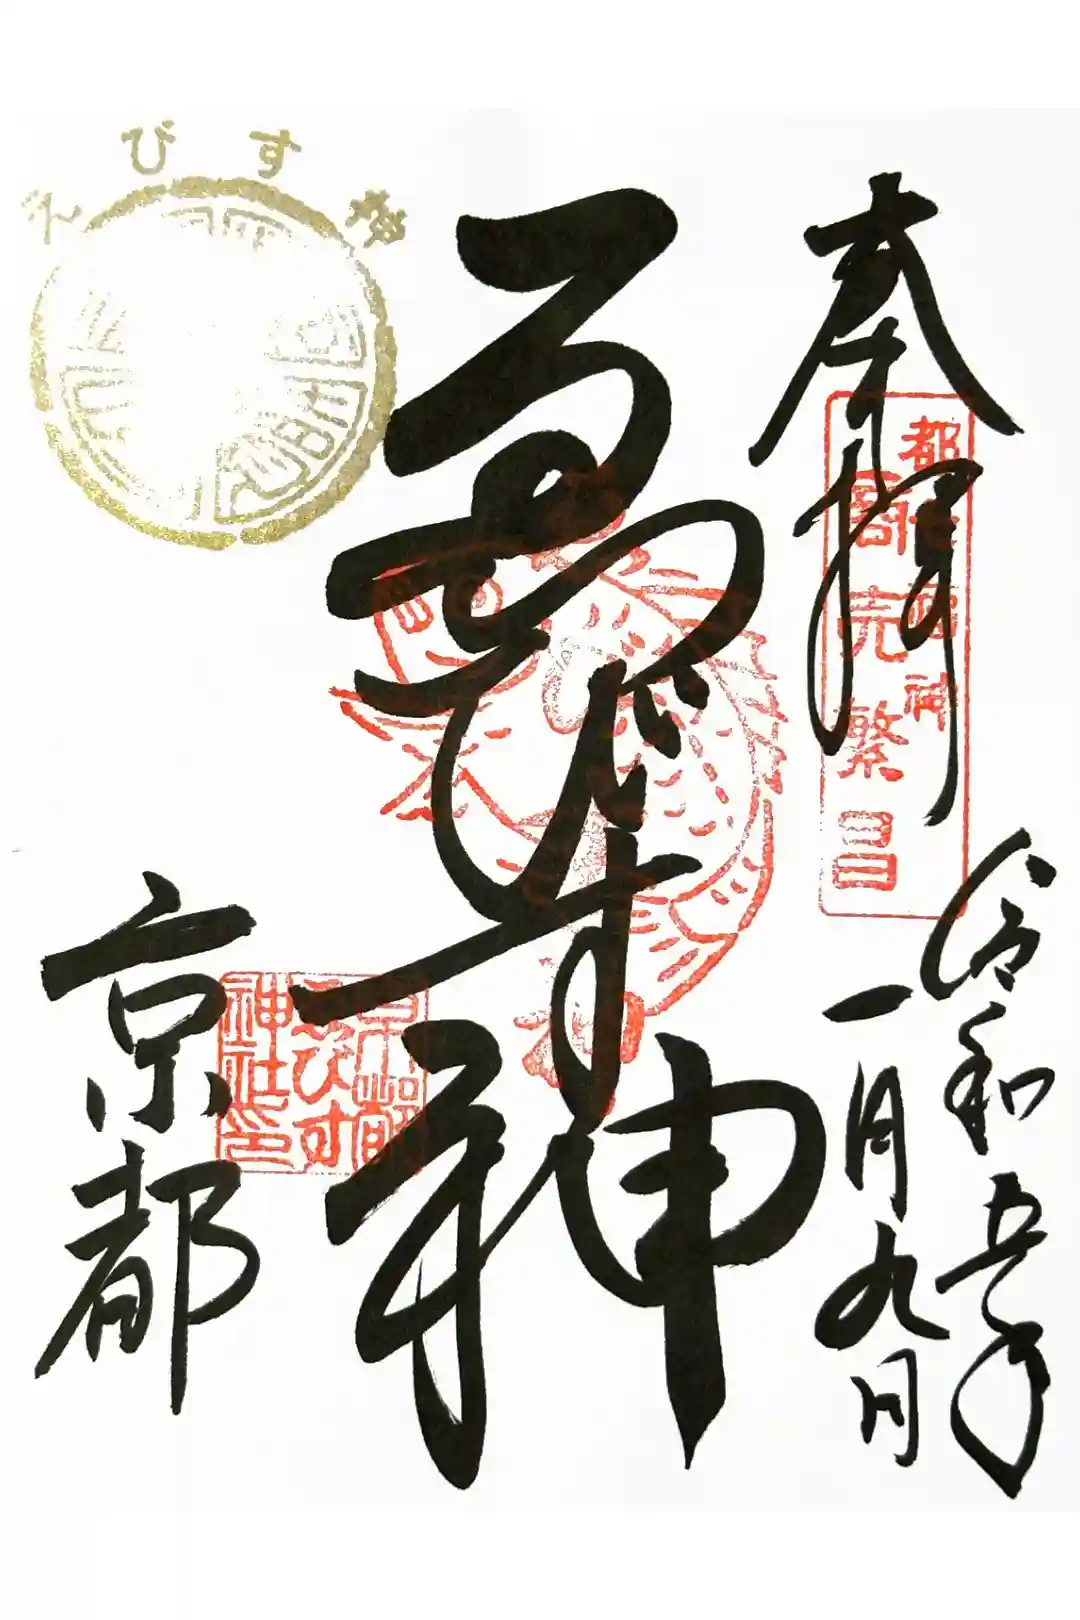 奉拝
都七福神
商売繁昌
令和五年
一月九日
ゑびす神
えびす神
ゑびす
神社印
京都